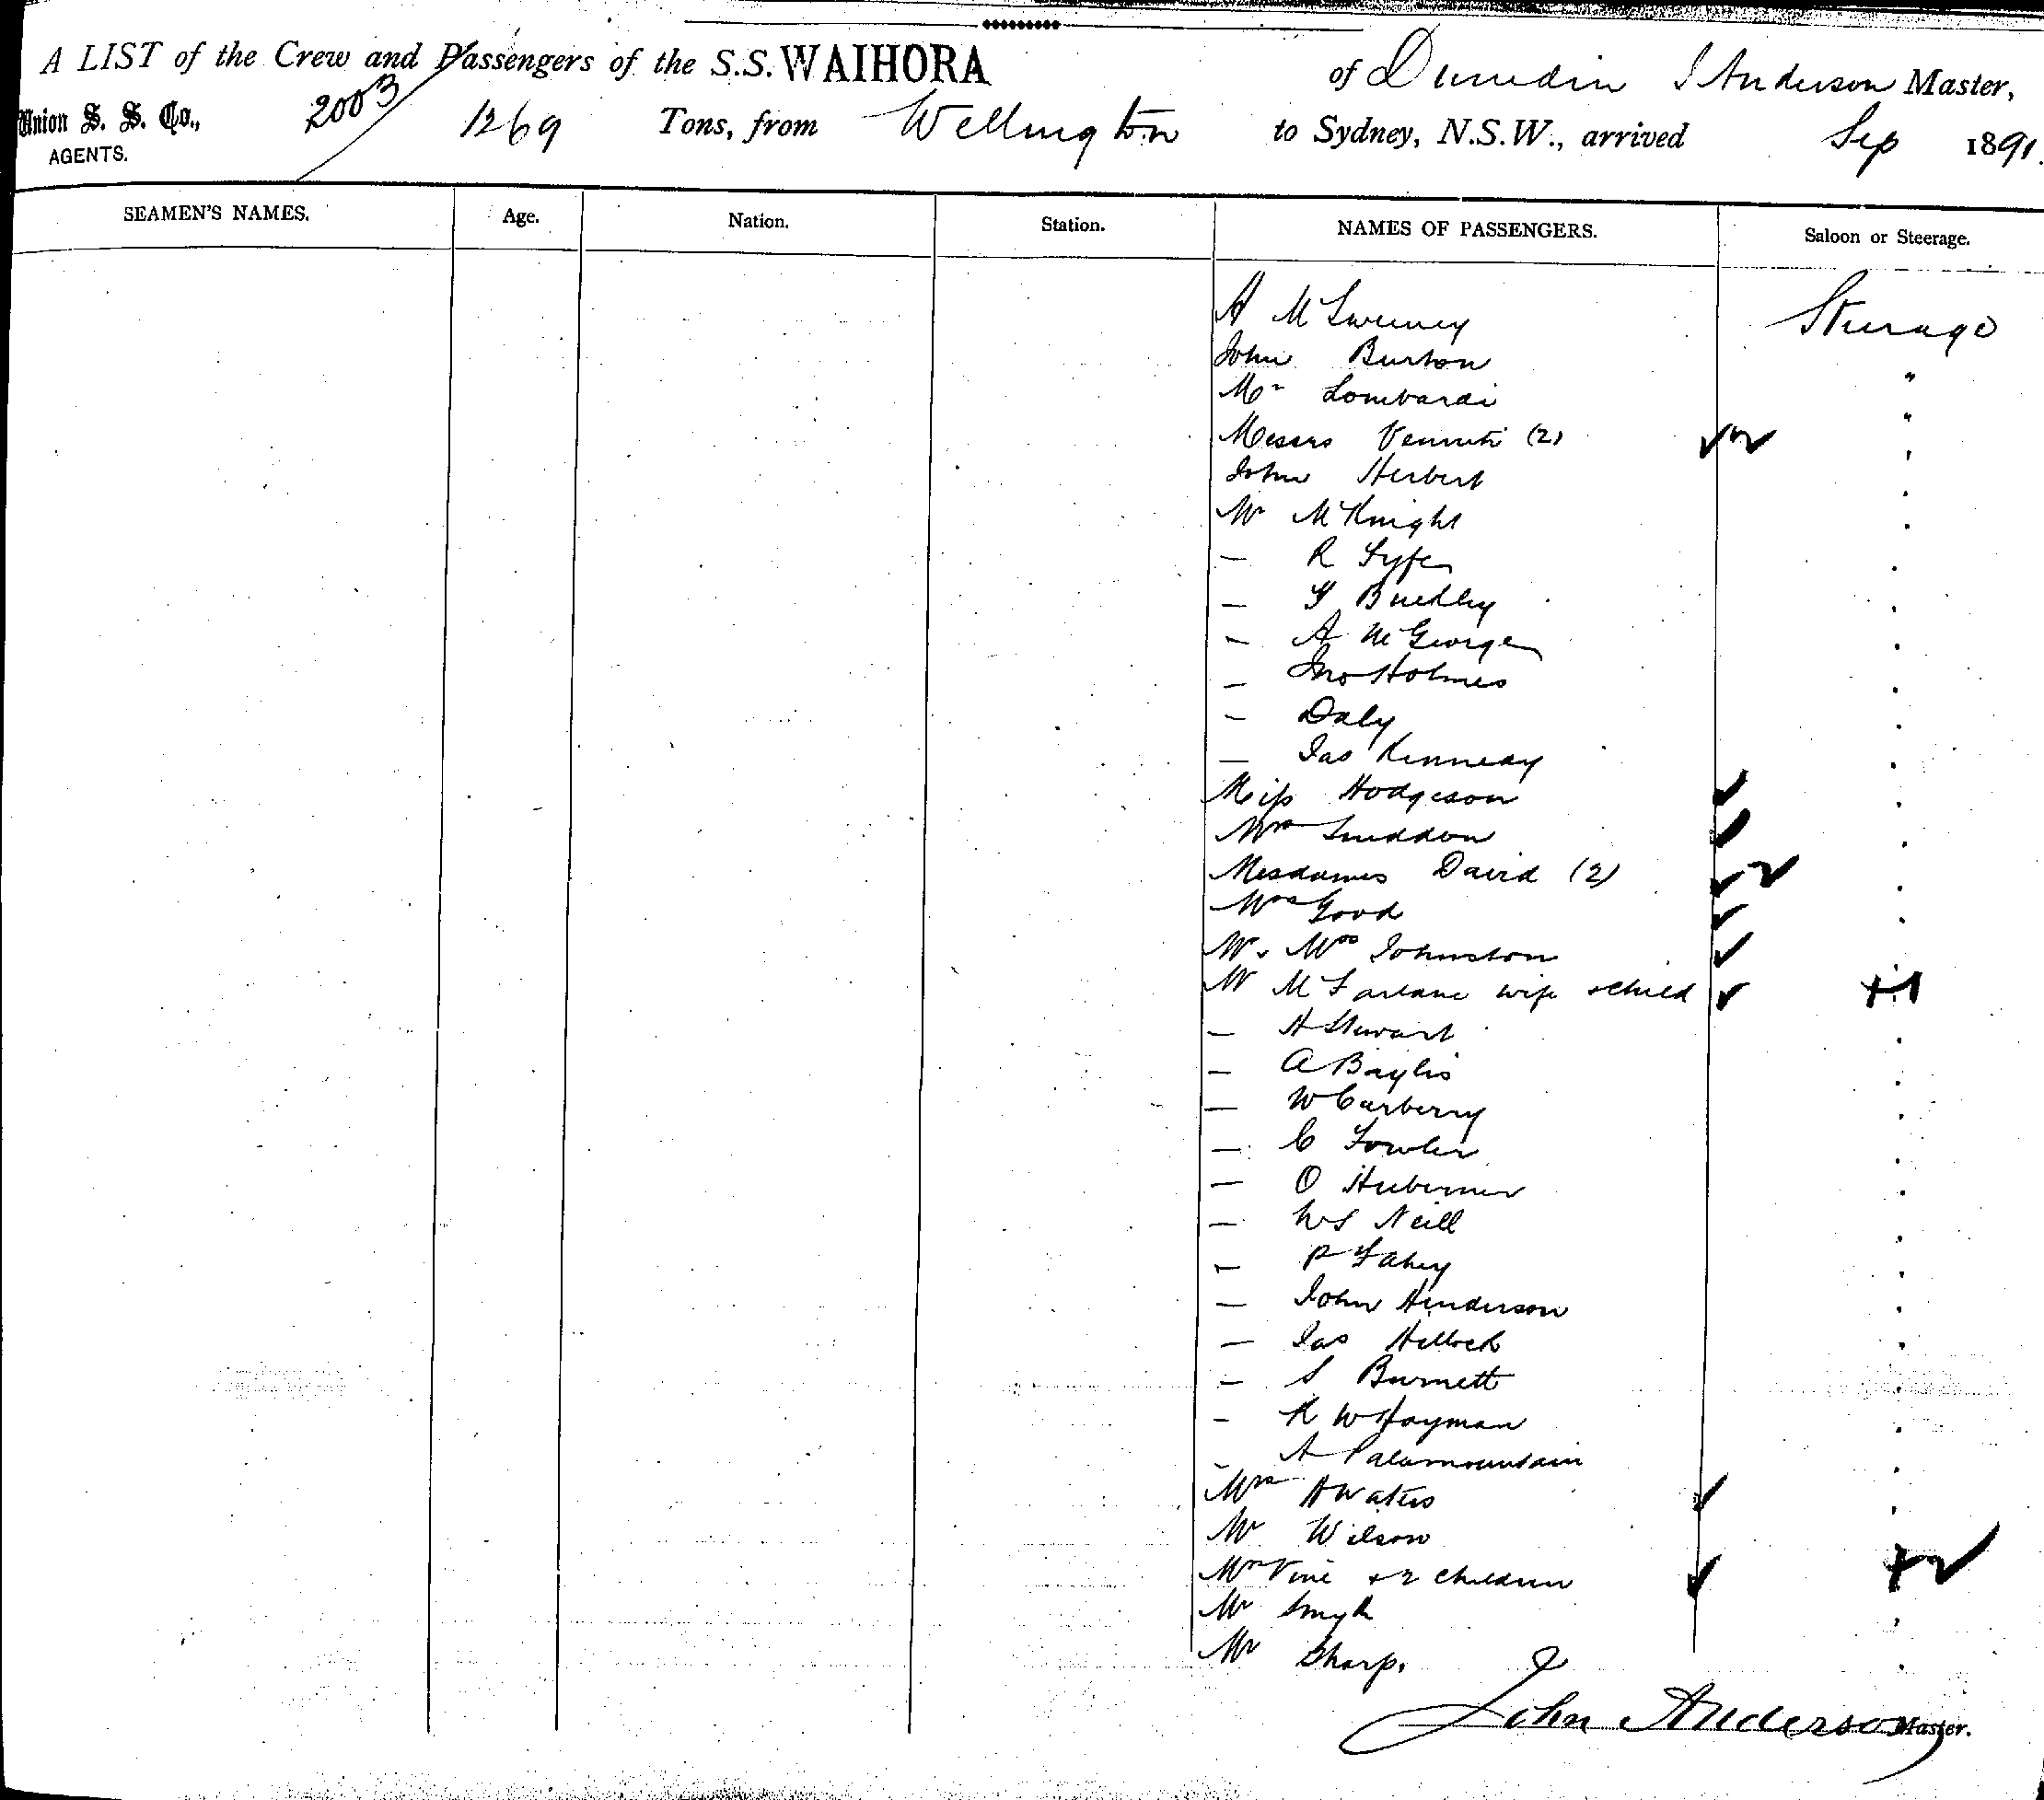 A LIST of the Crew and Passengers of the S.S. WAIHORA of Dunedin J Anderson Master,
Union S. S. Co., 2003 1269 Tons, from Wellington to Sydney, N.S.W., arrived Sep 1891.
AGENTS.
SEAMEN'S NAMES. Age. Nation. Station. NAMES OF PASSENGERS. Saloon or Steerage.
A McSweeney Steerage
John Burton "
Mr Lombardi "
Messrs (2)
John Herbert
Mr McKnight
— R Fyfe
— Buckley
— A McGeorge
— Jno Holmes
— Daly
— Jas Kennedy
Miss Hodgeson
Mrs Sneddon
Mesdames David (2) 2
Mrs Good
Mr & Mrs Johnston
Mr McFarlane wife & child +1
— H Stewart
— A Baylis
— W Carberry
— C Fowler
— O Huberner
— W S Neill
— P Fahey
— John Henderson
— Jas
— S Burnett
— R W Hayman
— A Palamountain
Mrs H Waters
Mr Wilson
Mrs Vine & 2 children +2
Mr Smyth
Mr Sharp.
John Anderson Master.